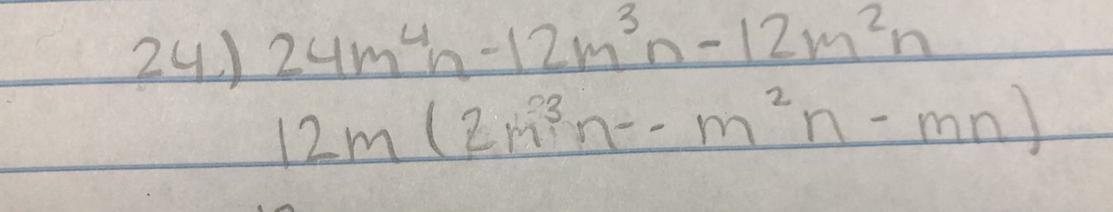 24.) 24m⁴n - 12m³n - 12m²n
12m (2m³n - - m²n - mn)